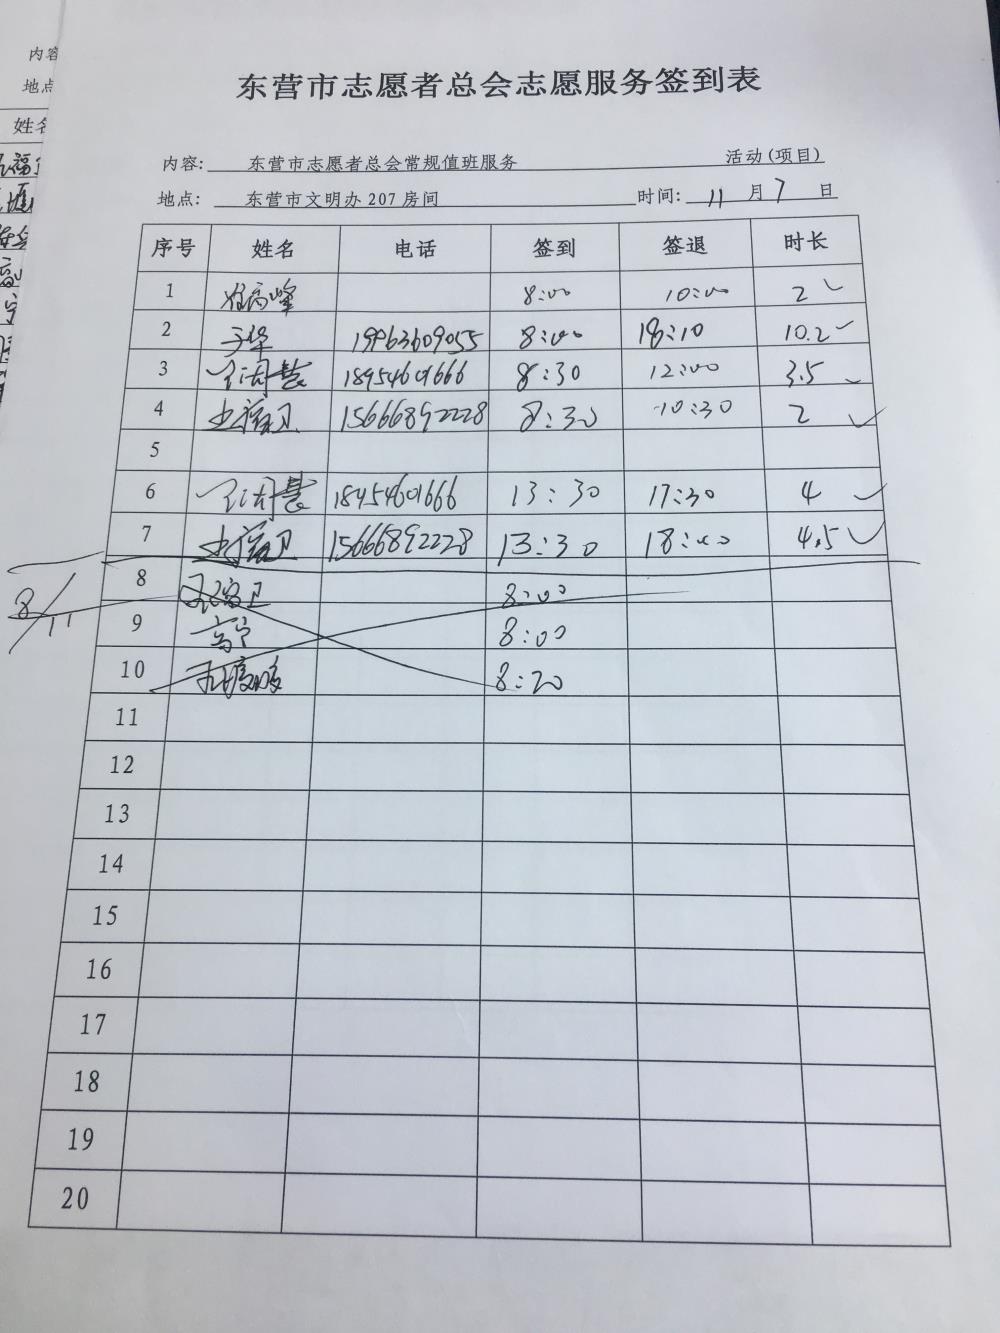 内容
地点
姓名
东营市志愿者总会志愿服务签到表
内容: 东营市志愿者总会常规值班服务 活动(项目)
地点: 东营市文明办 207 房间 时间: 11 月 7 日
序号 姓名 电话 签到 签退 时长
1 8:00 10:00 2 ✓
2 于华 19963609055 8:00 18:10 10.2 ✓
3 18954601666 8:30 12:00 3.5 ✓
4 15666892228 8:30 10:30 2 ✓
5
6 18954601666 13:30 17:30 4 ✓
7 15666892228 13:30 18:00 4.5 ✓
8/11
8 8:00
9 高宁 8:00
10 8:20
11
12
13
14
15
16
17
18
19
20